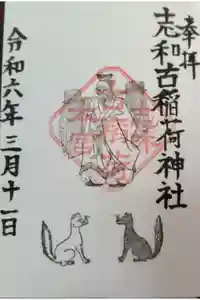 奉拝
志和古稲荷神社
令和六年三月十一日